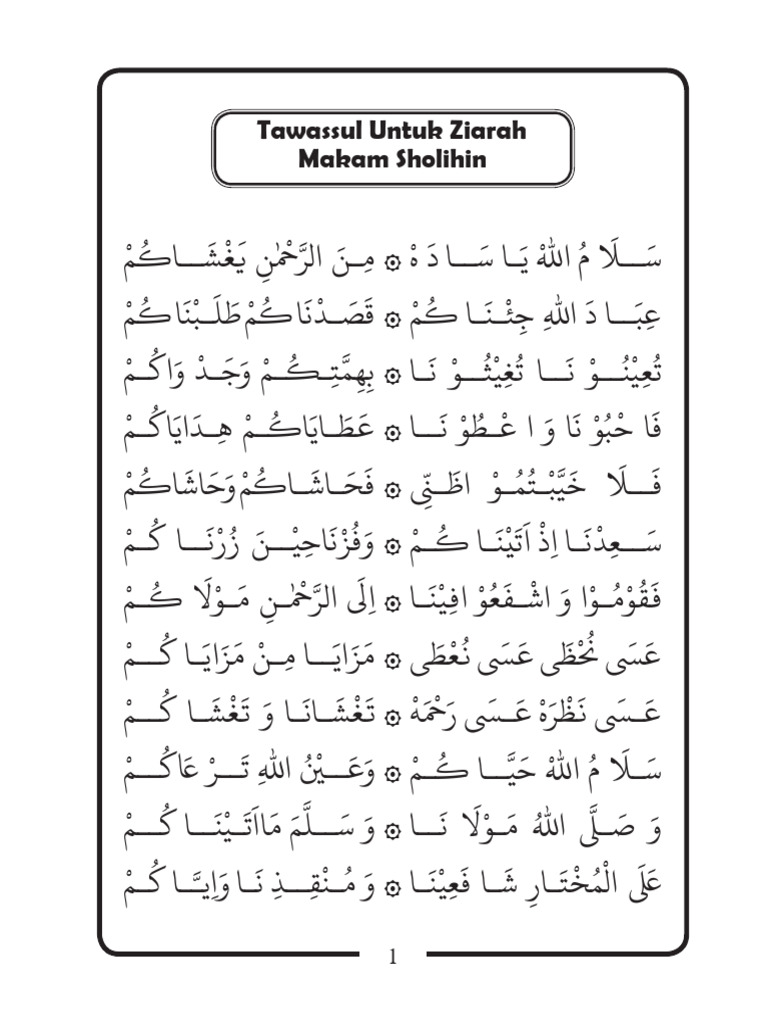 Tawassul Untuk Ziarah
Makam Sholihin
سَــلَا مُ اللهْ يَـا سَـــا دَ هْ ۞ مِـنَ الرَّحْمٰنِ يَغْشَـــاكُمْ
عِبَـــا دَ اللهِ جِئْـنَـا كُمْ ۞ قَصَـدْنَاكُمْ طَلَـبْنَاكُمْ
تُعِيْنُـــوْ نَـــا تُغِيْثُـــوْ نَـا ۞ بِهِمَّتِـكُـمْ وَجَـدْ وَاكُـمْ
فَا حْبُوْ نَا وَ ا عْـطُوْ نَـــا ۞ عَطَـايَاكُـمْ هِـدَايَاكُمْ
فَـــلَا خَيَّبْـتُمُـوْ اظَـنِّى ۞ فَحَـاشَـاكُمْ وَحَاشَاكُمْ
سَــعِدْنَــا اِذْ اَتَيْنَـا كُــمْ ۞ وَفُزْنَاحِيْــنَ زُرْنَـــا كُــمْ
فَقُوْمُـوْا وَ اشْـفَعُوْ افِيْنَـا ۞ اِلَى الرَّحْمٰـنِ مَـوْلَا كُمْ
عَسَى نُحْظَى عَسَى نُعْطَى ۞ مَزَايَـــا مِـنْ مَزَايَـا كُــمْ
عَـسَى نَظْرَهْ عَـسَى رَحْمَهْ ۞ تَغْشَـانَـا وَ تَغْشَـا كُــمْ
سَـلَا مُ اللهْ حَيَّـــا كُــمْ ۞ وَعَـــيْنُ اللهِ تَـــرْ عَاكُــمْ
وَ صَـلَّى اللهُ مَـوْلَا نَـــا ۞ وَ سَــــلَّمَ مَااَتَـيْنَـــا كُــمْ
عَلَى الْمُخْتَـارِ شَـا فَعِيْنَـا ۞ وَ مُـنْقِــذِ نَـا وَاِيَّـــا كُــمْ
1